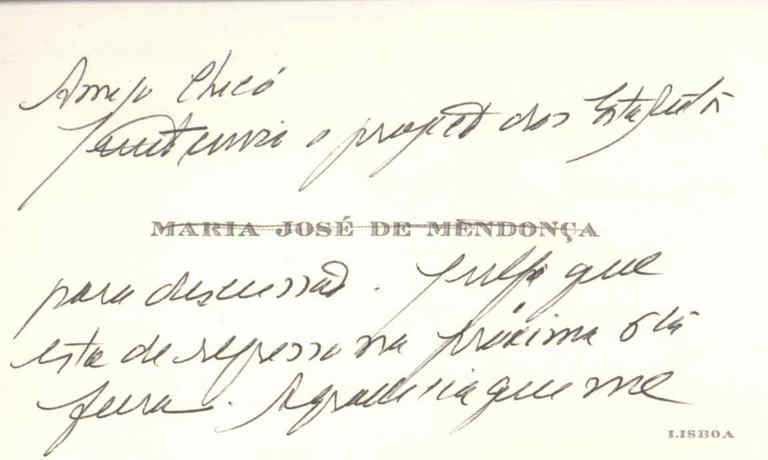 Amigo Chicó
Junto envio o project dos Estatutos
MARIA JOSÉ DE MENDONÇA
para discussão. Julgo que
está de regresso na próxima 6ª
feira. Agradecia que me
LISBOA